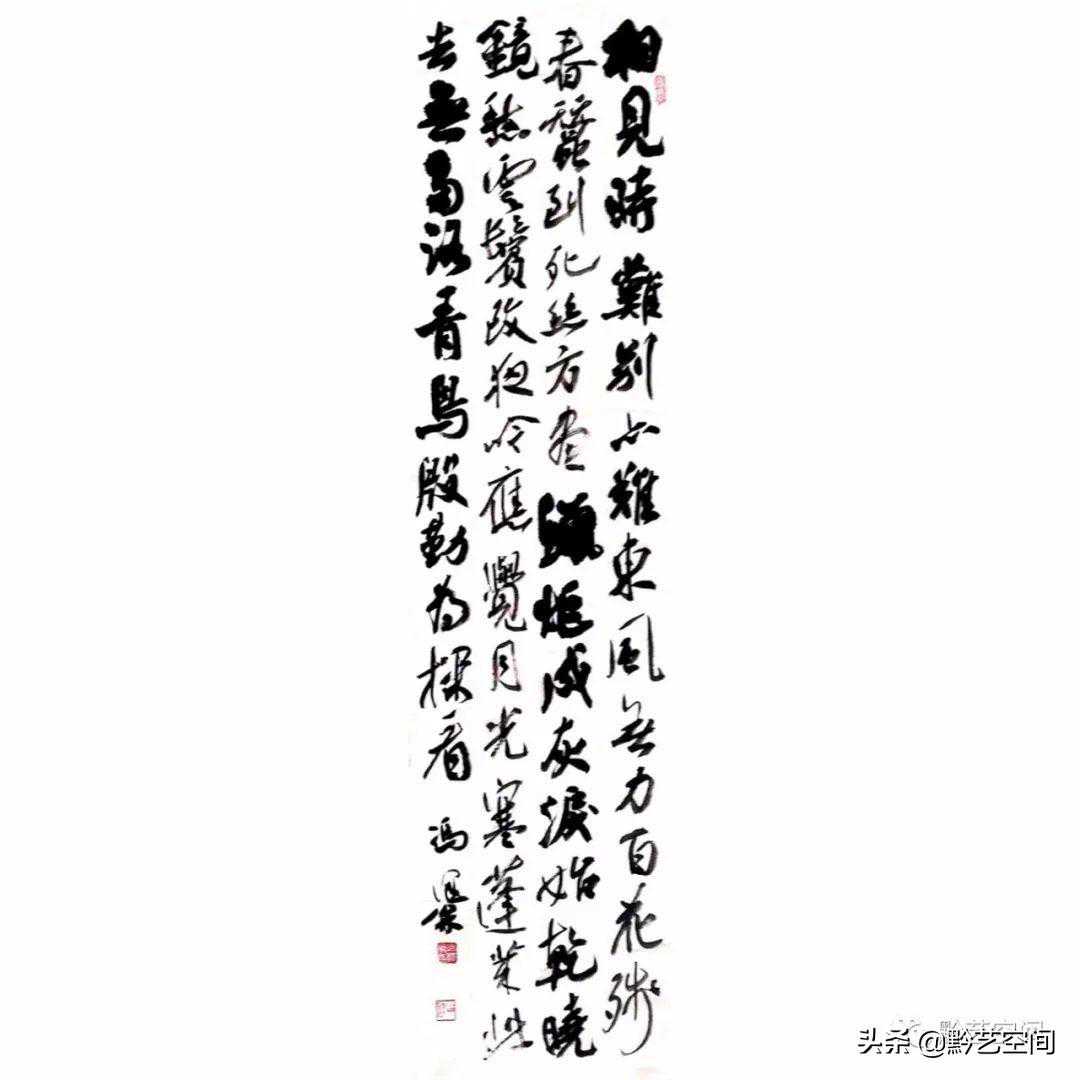 相見時難別亦難東風無力百花殘
春蠶到死絲方盡蠟炬成灰淚始乾曉
鏡愁雲鬢改夜吟應覺月光寒蓬萊此
去無多路青鳥殷勤為探看
馮
黔艺空间
头条 @黔艺空间